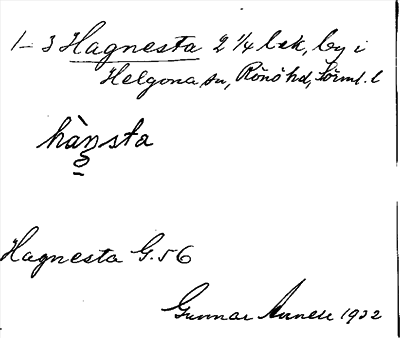 1-3 Hagnesta 2 1/4 bsk, by i
Helgona sn, Rönö hd, Sörml. l
hàŋsta
Hagnesta G.56
Gunnar 1932